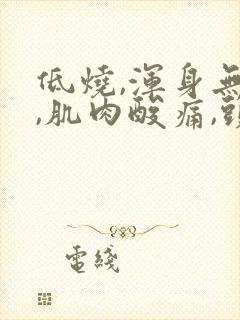 低燒,渾身無
,肌肉酸痛,頭
電綫